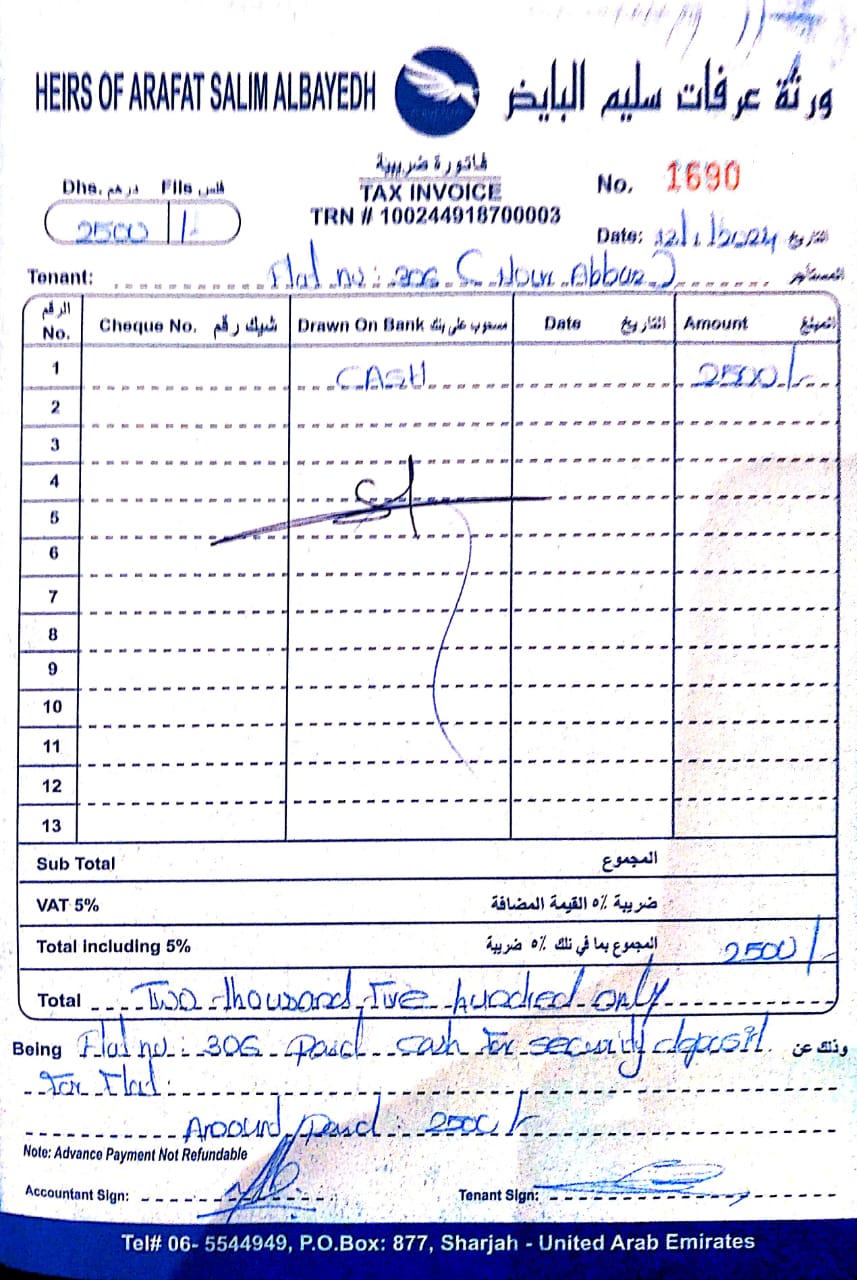 HEIRS OF ARAFAT SALIM ALBAYEDH ورثة عرفات سليم البايض
فاتورة ضريبية
TAX INVOICE
TRN # 100244918700003
Dhs. درهم Fils فلس
2500 /-
No. 1690
Date: 12/1/2024 التاريخ
Tenant: Flat no: 306 المستأجر
الرقم No. Cheque No. شيك رقم Drawn On Bank مسحوب على بنك Date التاريخ Amount المبلغ
1 CASH 2500/-
2
3
4
5
6
7
8
9
10
11
12
13
Sub Total المجموع
VAT 5% ضريبة ٥٪ القيمة المضافة
Total including 5% المجموع بما في ذلك ٥٪ ضريبة 2500/-
Total Two thousand five hundred only
Being Flat no: 306 paid cash for security deposit وذلك عن
for Flat.
paid: 2500/-
Note: Advance Payment Not Refundable
Accountant Sign: Tenant Sign:
Tel# 06- 5544949, P.O.Box: 877, Sharjah - United Arab Emirates